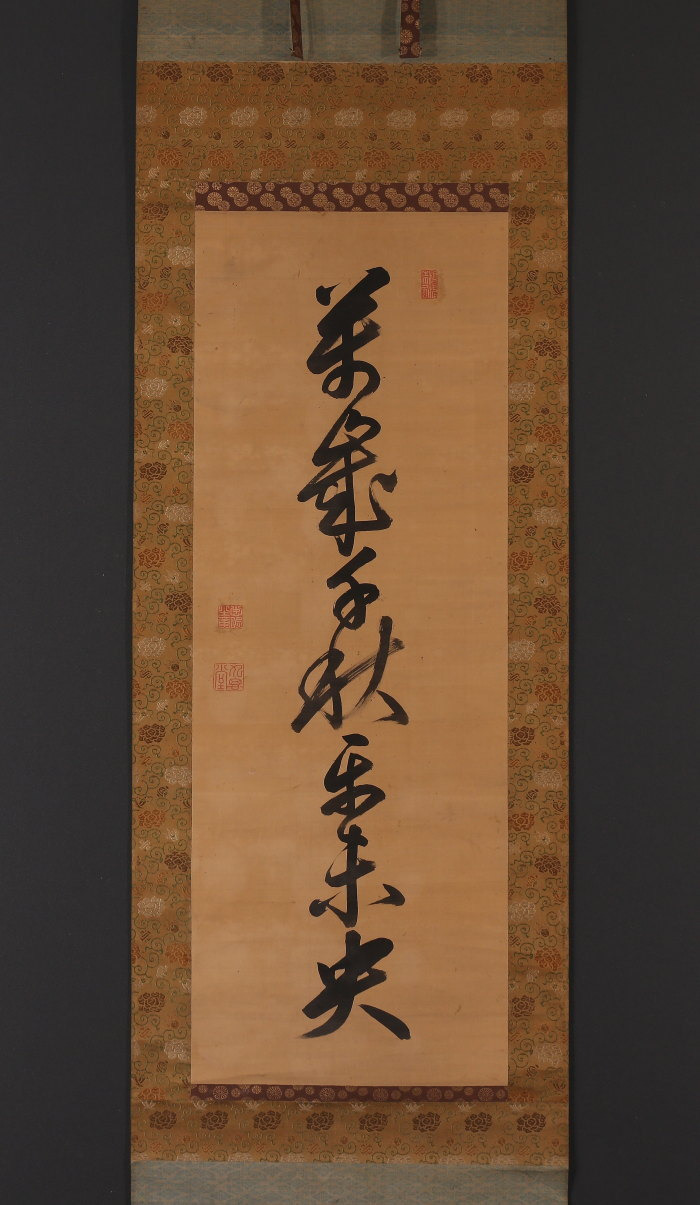 萬歳千秋樂未央